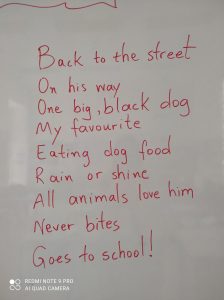 Back to the street
On his way
One big, black dog
My favourite
Eating dog food
Rain or shine
All animals love him
Never bites
Goes to school!
REDMI NOTE 9 PRO
AI QUAD CAMERA